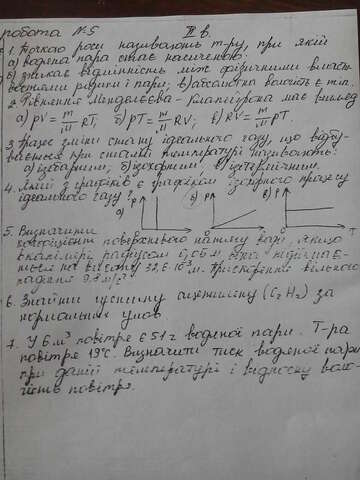 робота №5 II в.
1. Точкою роси називають т-ру, при якій
а) водяна пара стає насиченою:
б) зникає відмінність між фізичними власти-
востями рідини і пари; в) абсолютна вологість є min.
2. Рівняння Менделєєва – Клапейрона має вигляд
а) pV = m/M RT; б) pT = m/M RV; в) RV = m/M pT.
3. Якає зміни стану ідеального газу, що відбу-
вається при сталій температурі називають:
а) ізобарним; б) ізохорним; в) ізотермічним.
4. Який з графіків є графіком ізохорного процесу
ідеального газу?
а) P б) P в) P
V T T
5. Визначити
коефіцієнт поверхневого натягу води, якщо
в капілярі радіусом 0,05 вона підніма-
ється на висоту 32,6·10⁻³м. Прискорення вільного
падіння 9,8 м/с²
6. Знайти густину ацетилену (C₂H₂) за
нормальних умов
7. У 6 м³ повітря є 51 г водяної пари. Т-ра
повітря 19°С. Визначити тиск водяної пари
при даній температурі і відносну воло-
гість повітря.